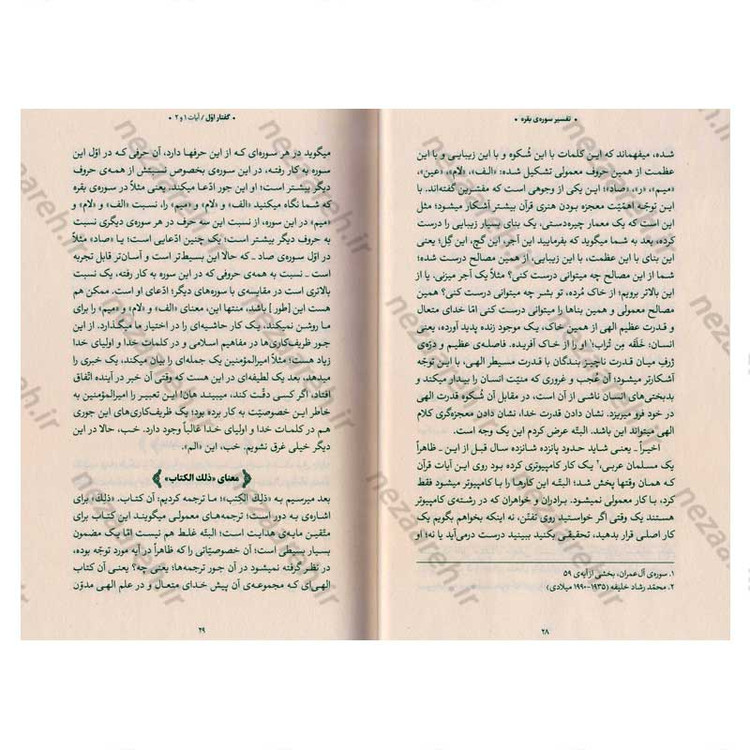 • تفسیر سوره‌ی بقره •
شده، میفهماند که ایـن کلمات با این شُکوه و با این زیبایی و با این
عظمت از همین حروف معمولی تشکیل شده؛ «الـف»، «لام»، «عین»،
«میم»، «ر»، «صاد»؛ این یکی از وجوهی است که مفسّرین گفته‌اند. با
این توجّه اهمّیّت معجزه بودن هنری قرآن بیشتر آشکار میشود؛ مثل
این است که یک معمار چیره‌دستی، یک بنای بسیار زیبایی را درست
کرده، بعد به شما میگوید که بفرمایید این آجر، این گچ، این گِل؛ یعنی
این بنای با این عظمت، با این زیبایی، از همین مصالح درست شده؛
شما از این مصالح چه میتوانی درست کنی؟ مثلاً یک آجر میزنی. یا از
این بالاتر برویم؛ از خاک مُرده، تو بشر چه میتوانی درست کنی؟ همین
مصالح معمولی و همین بناها را میتوانی درست کنی امّا خدای متعال
و قدرت عظیم الهی از همین خاک، یک موجود زنده پدید آورده، یعنی
انسان: خَلَقَه مِن تُراب؛¹ او را از خاک آفریده. فاصله‌ی عظیم و درّه‌ی
ژرفِ میان قدرت ناچیز بندگان با قدرت مسیطر الهی، با این توجّه
آشکارتر میشود؛ آن عُجب و غروری که منیّت انسان را بیدار میکند و
بدبختی‌های انسان ناشی از آن است، در مقابل آن شُکوه قدرت الهی
در خود فرو میریزد. نشان دادن قدرت خدا، نشان دادن معجزه‌گری کلام
الهی میتواند این باشد. البتّه عرض کردم این یک وجه است.
اخیراً ـ یعنی شاید حدود پانزده شانزده سال قبل از ایـن ـ ظاهراً
یک مسلمان عربی،² یک کار کامپیوتری کرده بود روی این آیات قرآن
که همان وقتها پخش شد؛ البتّه این کارها را با کامپیوتر میشود فقط
کرد، با کار معمولی نمیشود. برادران و خواهران که در رشته‌ی کامپیوتر
هستند یک وقتی اگر خواستید روی تفنّن، نه اینکه بخواهم بگویم یک
کار اصلی قرار بدهید، تحقیقی بکنید ببینید درست درمی‌آید یا نه؛ او
۱. سوره‌ی آل‌عمران، بخشی از آیه‌ی ۵۹
۲. محمّد رشاد خلیفه (۱۹۳۵-۱۹۹۰ میلادی)
۲۸
• گفتار اوّل / آیات ۱ و ۲ •
میگوید در هر سوره‌ای که از این حرفها دارد، آن حرفی که در اوّل این
سوره به کار رفته، در این سوره‌ی بخصوص نسبتش از همه‌ی حروف
دیگر بیشتر است؛ او این جور ادّعا میکند. یعنی مثلاً در سوره‌ی بقره
که شما نگاه میکنید «الف» و «لام» و «میم» را، نسبت «الف» و «لام» و
«میم» در این سوره، از نسبت این سه حرف در هر سوره‌ی دیگری نسبت
به حروف دیگر بیشتر است؛ یک چنین ادّعایی است؛ یا «صاد» مثلاً
در اوّل سوره‌ی صاد ـ که حالا این بسیط‌تر است و آسان‌تر قابل تجربه
است ـ نسبت به همه‌ی حروفی که در این سوره به کار رفته، یک نسبت
بالاتری است در مقایسه‌ی با سوره‌های دیگر؛ ادّعای او است. ممکن هم
هست این [طور] باشد، منتها این، معنای «الف» و «لام» و «میم» را برای
ما روشن نمیکند، یک کار حاشیه‌ای را در اختیار ما میگذارد. از این
جور ظریف‌کاری‌ها در مفاهیم اسلامی و در کلمات خدا و اولیای خدا
زیاد هست؛ مثلاً امیرالمؤمنین یک جمله‌ای را بیان میکند، یک خبری را
میدهد، بعد یک لطیفه‌ای در این هست که وقتی آن خبر در آینده اتّفاق
افتاد، اگر کسی دقّت کند، میبیند هان! این تعبیر را امیرالمؤمنین به
خاطر این خصوصیّت به کار برده بود؛ یک ظریف‌کاری‌های این جوری
هم در کلمات خدا و اولیای خدا غالباً وجود دارد. خب، حالا در این
دیگر خیلی غرق نشویم. خب، این «الم».
معنای «ذلك الکتاب»
بعد میرسیم به «ذلِكَ الکِتب»؛ ما ترجمه کردیم: آن کتاب. «ذلك» برای
اشاره‌ی به دور است؛ ترجمه‌های معمولی میگویند این کتاب برای
متّقین مایه‌ی هدایت است؛ البتّه غلط هم نیست امّا یک مضمون
بسیار بسیطی است؛ آن خصوصیّاتی را که ظاهراً در آیه مورد توجّه بوده،
در نظر گرفته نمیشود در آن جور ترجمه‌ها؛ یعنی چه؟ یعنی آن کتاب
الهی‌ای که مجموعه‌ی آن پیش خدای متعال و در علم الهی مدوّن
۲۹
nezaareh.ir